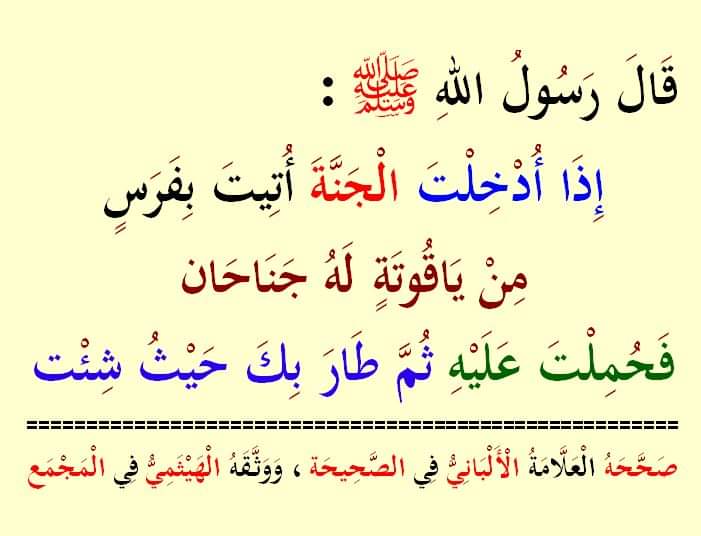 قَالَ رَسُولُ اللهِ ﷺ :
إِذَا أُدْخِلْتَ الْجَنَّةَ أُتِيتَ بِفَرَسٍ
مِنْ يَاقُوتَةٍ لَهُ جَنَاحَان
فَحُمِلْتَ عَلَيْهِ ثُمَّ طَارَ بِكَ حَيْثُ شِئْت
صَحَّحَهُ الْعَلَّامَةُ الْأَلْبَانِيُّ فِي الصَّحِيحَة ، وَوَثَّقَهُ الْهَيْثَمِيُّ فِي الْمَجْمَع